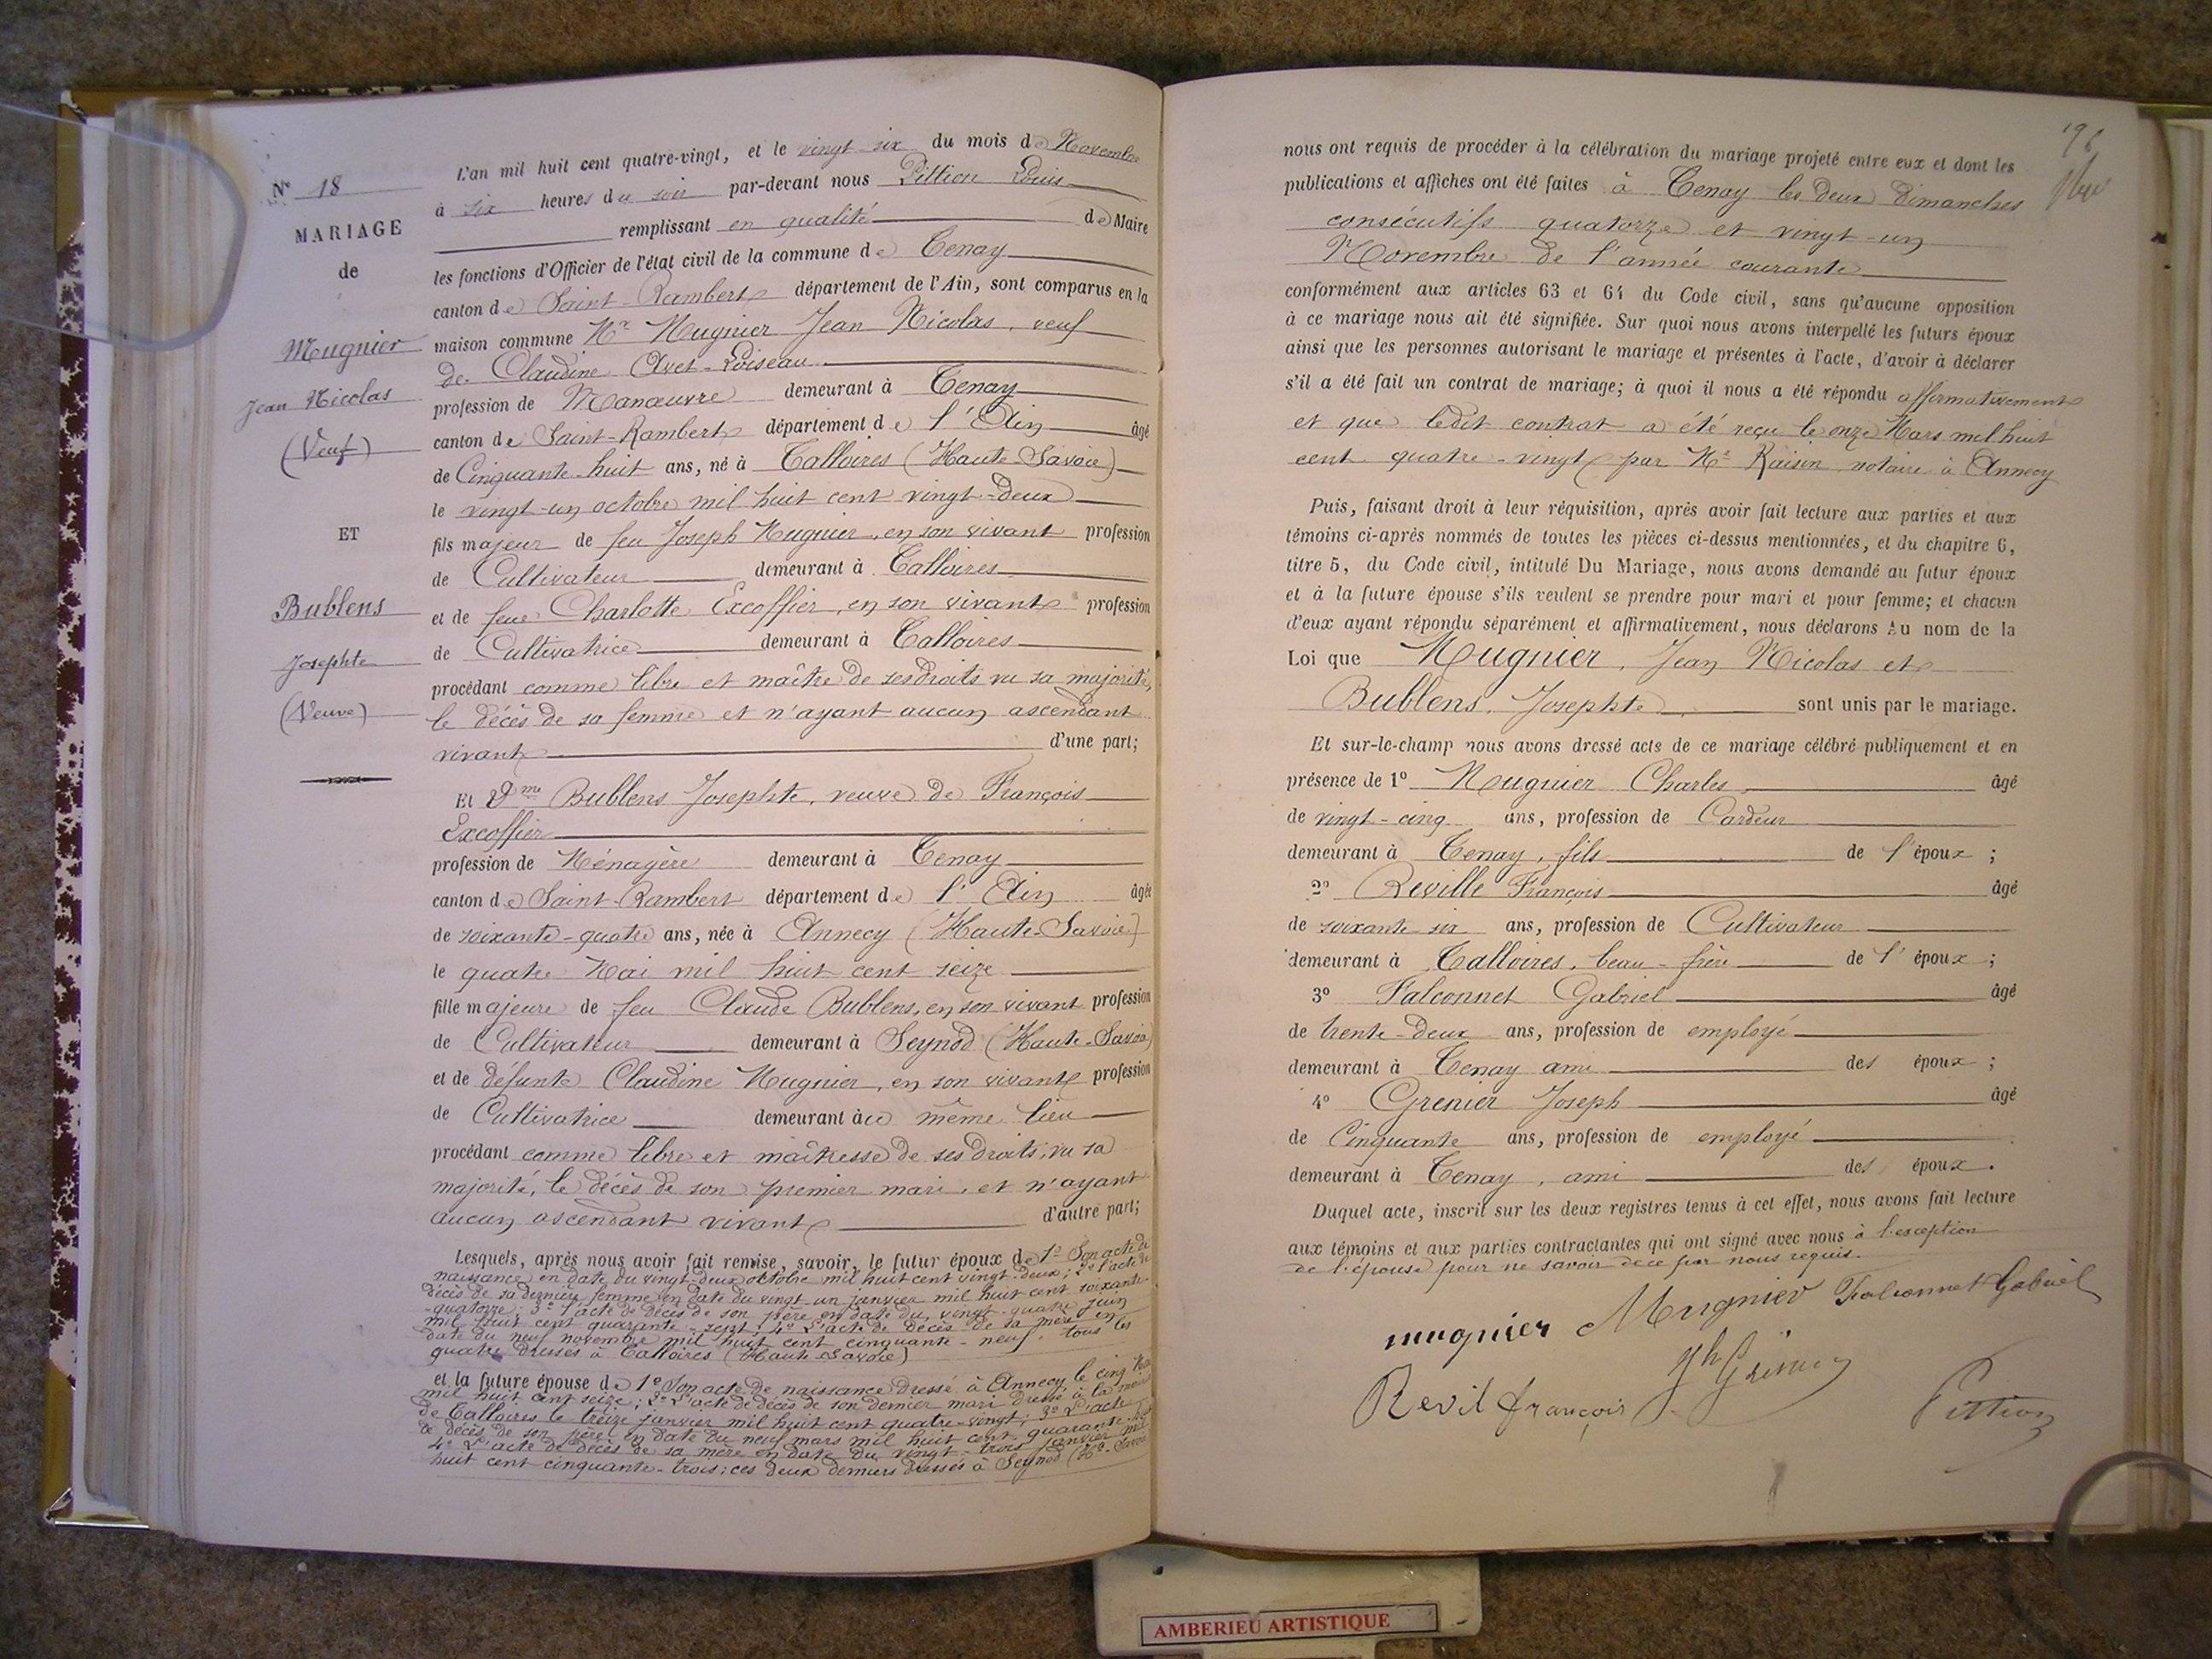 N° 18
MARIAGE
de
Mugnier
Jean Nicolas
(Veuf)
ET
Bublens
Josephte
(Veuve)
L'an mil huit cent quatre-vingt, et le vingt-six du mois de Novembre
à six heures du soir par-devant nous Pittion Louis
remplissant en qualité de Maire
les fonctions d'Officier de l'état civil de la commune de Tenay
canton de Saint-Rambert département de l'Ain, sont comparus en la
maison commune Mr Mugnier Jean Nicolas, veuf
de Claudine Avet-Loiseau
profession de Manœuvre demeurant à Tenay
canton de Saint-Rambert département de l'Ain âgé
de Cinquante-huit ans, né à Talloires (Haute-Savoie)
le vingt-un octobre mil huit cent vingt-deux
fils majeur de feu Joseph Mugnier, en son vivant profession
de Cultivateur demeurant à Talloires
et de feue Charlotte Excoffier, en son vivant profession
de Cultivatrice demeurant à Talloires
procédant comme libre et maître de ses droits vu sa majorité,
le décès de sa femme et n'ayant aucun ascendant
vivant d'une part;
Et Dme Bublens Josephte, veuve de François
Excoffier
profession de Ménagère demeurant à Tenay
canton de Saint-Rambert département de l'Ain âgée
de soixante-quatre ans, née à Annecy (Haute-Savoie)
le quatre Mai mil huit cent seize
fille majeure de feu Claude Bublens, en son vivant profession
de Cultivateur demeurant à Seynod (Haute-Savoie)
et de défunte Claudine Mugnier, en son vivant profession
de Cultivatrice demeurant au même lieu
procédant comme libre et maîtresse de ses droits, vu sa
majorité, le décès de son premier mari, et n'ayant
aucun ascendant vivant d'autre part;
Lesquels, après nous avoir fait remise, savoir, le futur époux de 1° Son acte de
naissance en date du vingt-deux octobre mil huit cent vingt-deux; 2° l'acte de
décès de sa dernière femme en date du vingt-un janvier mil huit cent soixante-
-quatorze; 3° l'acte de décès de son père en date du vingt-quatre juin
mil huit cent quarante-sept; 4° L'acte de décès de sa mère en
date du neuf novembre mil huit cent cinquante-neuf, tous les
quatre dressés à Talloires (Haute-Savoie)
et la future épouse de 1° Son acte de naissance dressé à Annecy le cinq Mai
mil huit cent seize; 2° L'acte de décès de son dernier mari dressé à la
de Talloires le treize janvier mil huit cent quatre-vingt; 3° L'acte
de décès de son père en date du neuf mars mil huit cent quarante
4° L'acte de décès de sa mère en date du vingt-trois janvier mil
huit cent cinquante-trois; ces deux derniers dressés à Seynod (Hte-Savoie
nous ont requis de procéder à la célébration du mariage projeté entre eux et dont les
publications et affiches ont été faites à Tenay les deux Dimanches
consécutifs quatorze et vingt-un
Novembre de l'année courante
conformément aux articles 63 et 64 du Code civil, sans qu'aucune opposition
à ce mariage nous ait été signifiée. Sur quoi nous avons interpellé les futurs époux
ainsi que les personnes autorisant le mariage et présentes à l'acte, d'avoir à déclarer
s'il a été fait un contrat de mariage; à quoi il nous a été répondu affirmativement
et que ledit contrat a été reçu le onze Mars mil huit
cent quatre-vingt par Me Raisin notaire à Annecy
Puis, faisant droit à leur réquisition, après avoir fait lecture aux parties et aux
témoins ci-après nommés de toutes les pièces ci-dessus mentionnées, et du chapitre 6,
titre 5, du Code civil, intitulé Du Mariage, nous avons demandé au futur époux
et à la future épouse s'ils veulent se prendre pour mari et pour femme; et chacun
d'eux ayant répondu séparément et affirmativement, nous déclarons Au nom de la
Loi que Mugnier, Jean Nicolas et
Bublens, Josephte sont unis par le mariage.
Et sur-le-champ nous avons dressé acte de ce mariage célébré publiquement et en
présence de 1° Mugnier Charles âgé
de vingt-cinq ans, profession de Cardeur
demeurant à Tenay, fils de l'époux;
2° Reville François âgé
de soixante six ans, profession de Cultivateur
demeurant à Talloires, beau-frère de l'époux;
3° Falconnet Gabriel âgé
de trente-deux ans, profession de employé
demeurant à Tenay ami des époux;
4° Grenier Joseph âgé
de Cinquante ans, profession de employé
demeurant à Tenay, ami des époux.
Duquel acte, inscrit sur les deux registres tenus à cet effet, nous avons fait lecture
aux témoins et aux parties contractantes qui ont signé avec nous à l'exception
de l'épouse pour ne savoir de ce par nous requis.
mugnier Mugnier Falconnet Gabriel
Revil françois Jh Grenier Pittion
AMBERIEU ARTISTIQUE